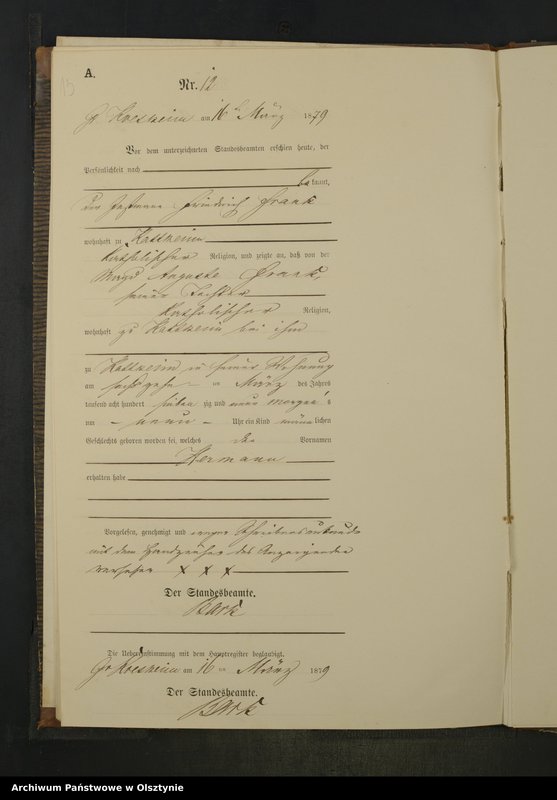 A.
Nr. 12
am 16 März 1879
Vor dem unterzeichneten Standesbeamten erschien heute, der
Persönlichkeit nach
kannt,
der Friedrich Frank
wohnhaft zu
katholischer Religion, und zeigte an, daß von der
Magd Auguste Frank,
seiner Tochter
katholischer Religion,
wohnhaft zu bei ihm
zu in seiner Wohnung
am ten März des Jahres
tausend acht hundert sieben zig und neun Morgens
um neun Uhr ein Kind männlichen
Geschlechts geboren worden sei, welches den Vornamen
Hermann
erhalten habe.
Vorgelesen, genehmigt und wegen
mit dem Handzeichen des Anzeigenden
versehen x x x
Der Standesbeamte.
Bark
Die Uebereinstimmung mit dem Hauptregister beglaubigt.
am 16 ten März 1879
Der Standesbeamte.
Bark
Archiwum Państwowe w Olsztynie